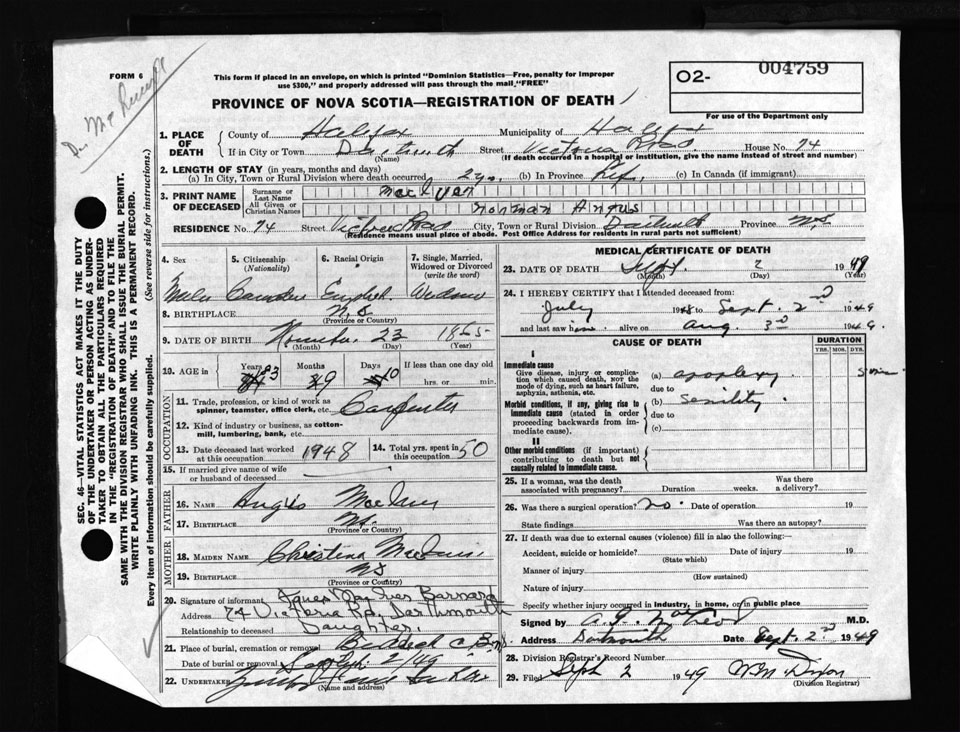 FORM 6
This form if placed in an envelope, on which is printed "Dominion Statistics—Free, penalty for improper
use $300," and properly addressed will pass through the mail "FREE"
O2- 004759
For use of the Department only
PROVINCE OF NOVA SCOTIA—REGISTRATION OF DEATH
1. PLACE OF DEATH
County of Halifax Municipality of Halifax
If in City or Town Dartmouth Street Victoria Road House No. 74
(Name) (If death occurred in a hospital or institution, give the name instead of street and number)
2. LENGTH OF STAY (in years, months and days)
(a) In City, Town or Rural Division where death occurred 2 yrs. (b) In Province life (c) In Canada (if immigrant)
3. PRINT NAME OF DECEASED
Surname or Last Name
All Given or Christian Names Norman Angus
RESIDENCE No. 74 Street Victoria Road City, Town or Rural Division Dartmouth Province N.S.
(Residence means usual place of abode. Post Office Address for residents in rural parts not sufficient)
4. Sex 5. Citizenship (Nationality) 6. Racial Origin 7. Single, Married, Widowed or Divorced (write the word)
Male Canadian English
8. BIRTHPLACE N.S
(Province or Country)
9. DATE OF BIRTH November 23 1865
(Month) (Day) (Year)
10. AGE in Years 83 Months 9 Days 10 If less than one day old
hrs. or min.
OCCUPATION
11. Trade, profession or kind of work as spinner, teamster, office clerk, etc. Carpenter
12. Kind of industry or business, as cotton-mill, lumbering, bank, etc.
13. Date deceased last worked at this occupation 1948 14. Total yrs. spent in this occupation 50
15. If married give name of wife or husband of deceased
FATHER
16. NAME Angus
17. BIRTHPLACE N.S.
(Province or Country)
MOTHER
18. MAIDEN NAME Christina
19. BIRTHPLACE NS
(Province or Country)
20. Signature of informant Barnard
Address 74 Victoria Rd. Dartmouth
Relationship to deceased Daughter.
21. Place of burial, cremation or removal
Date of burial or removal Sept. 2/49
22. UNDERTAKER
(Name and address)
MEDICAL CERTIFICATE OF DEATH
23. DATE OF DEATH Sept. 2 1949
(Month) (Day) (Year)
24. I HEREBY CERTIFY that I attended deceased from:
July 1948 to Sept. 2nd 1949
and last saw him alive on Aug. 3rd 1949.
CAUSE OF DEATH
DURATION
YRS. MOS. DYS.
I
Immediate cause
Give disease, injury or complication which caused death, NOT the mode of dying, such as heart failure, asphyxia, asthenia, etc.
(a) apoplexy
due to
Morbid conditions, if any, giving rise to immediate cause (stated in order proceeding backwards from immediate cause).
(b) senility
due to
(c)
II
Other morbid conditions (if important) contributing to death but not causally related to immediate cause.
25. If a woman, was the death associated with pregnancy? Duration weeks. Was there a delivery?
26. Was there a surgical operation? no. Date of operation 19
State findings Was there an autopsy?
27. If death was due to external causes (violence) fill in also the following:
Accident, suicide or homicide? Date of injury 19
(State which)
Manner of injury
(How sustained)
Nature of injury
Specify whether injury occurred in industry, in home, or in public place
Signed by M.D.
Address Dartmouth Date Sept. 2nd 1949
28. Division Registrar's Record Number
29. Filed Sept 2 1949
(Division Registrar)
SEC. 46—VITAL STATISTICS ACT MAKES IT THE DUTY
OF THE UNDERTAKER OR PERSON ACTING AS UNDER-
TAKER TO OBTAIN ALL THE PARTICULARS REQUIRED
IN THE "REGISTRATION OF DEATH" AND TO FILE THE
SAME WITH THE DIVISION REGISTRAR WHO SHALL ISSUE THE BURIAL PERMIT.
WRITE PLAINLY WITH UNFADING INK. THIS IS A PERMANENT RECORD.
Every item of information should be carefully supplied. (See reverse side for instructions.)